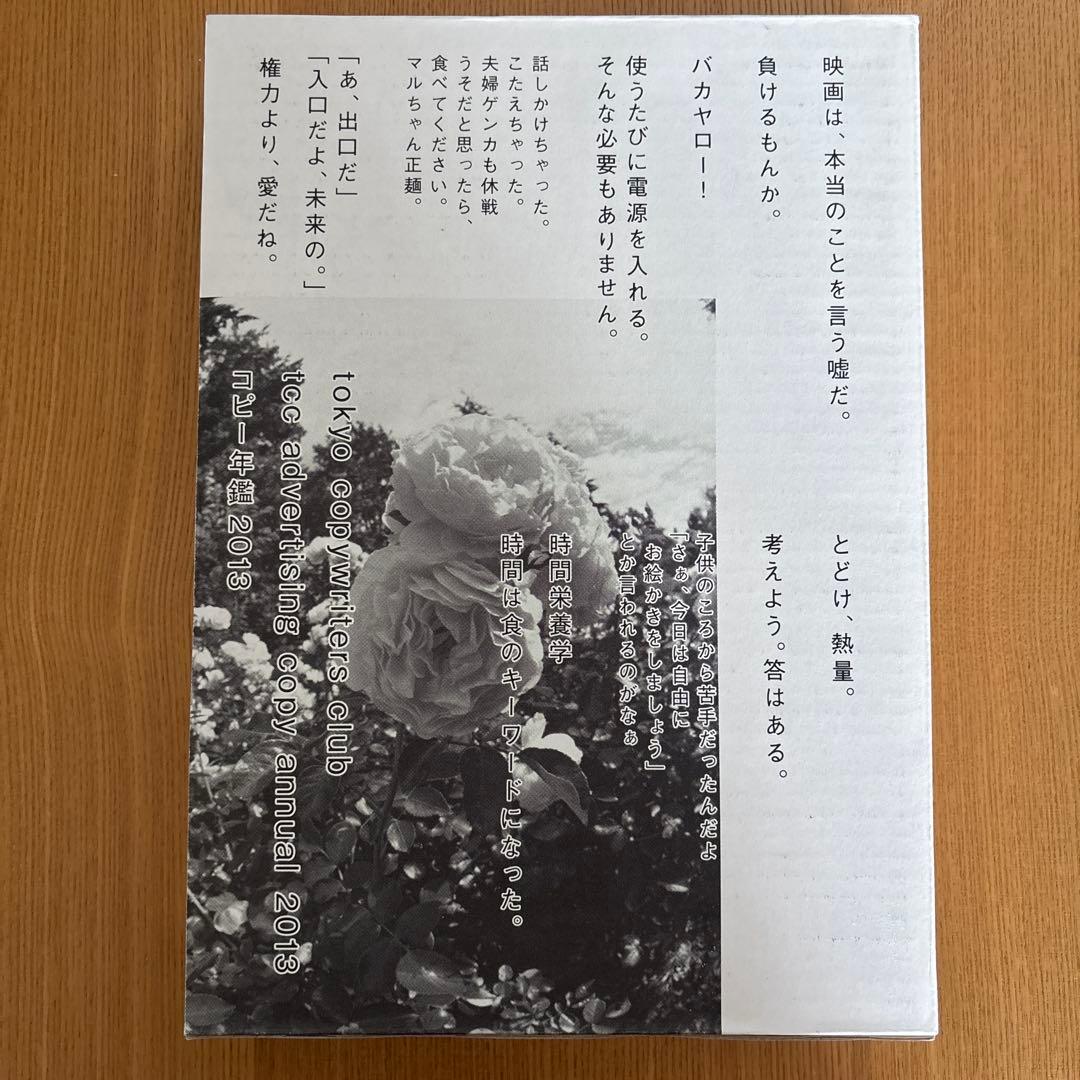 映画は、本当のことを言う嘘だ。
負けるもんか。
バカヤロー！
使うたびに電源を入れる。
そんな必要もありません。
話しかけちゃった。
こたえちゃった。
夫婦ゲンカも休戦
うそだと思ったら、
食べてください。
マルちゃん正麺。
「あ、出口だ」
「入口だよ、未来の。」
権力より、愛だね。
とどけ、熱量。
考えよう。答はある。
子供のころから苦手だったんだよ
「さぁ、今日は自由に
お絵かきをしましょう」
とか言われるのがなぁ
時間栄養学
時間は食のキーワードになった。
tokyo copywriters club
tcc advertising copy annual 2013
コピー年鑑 2013